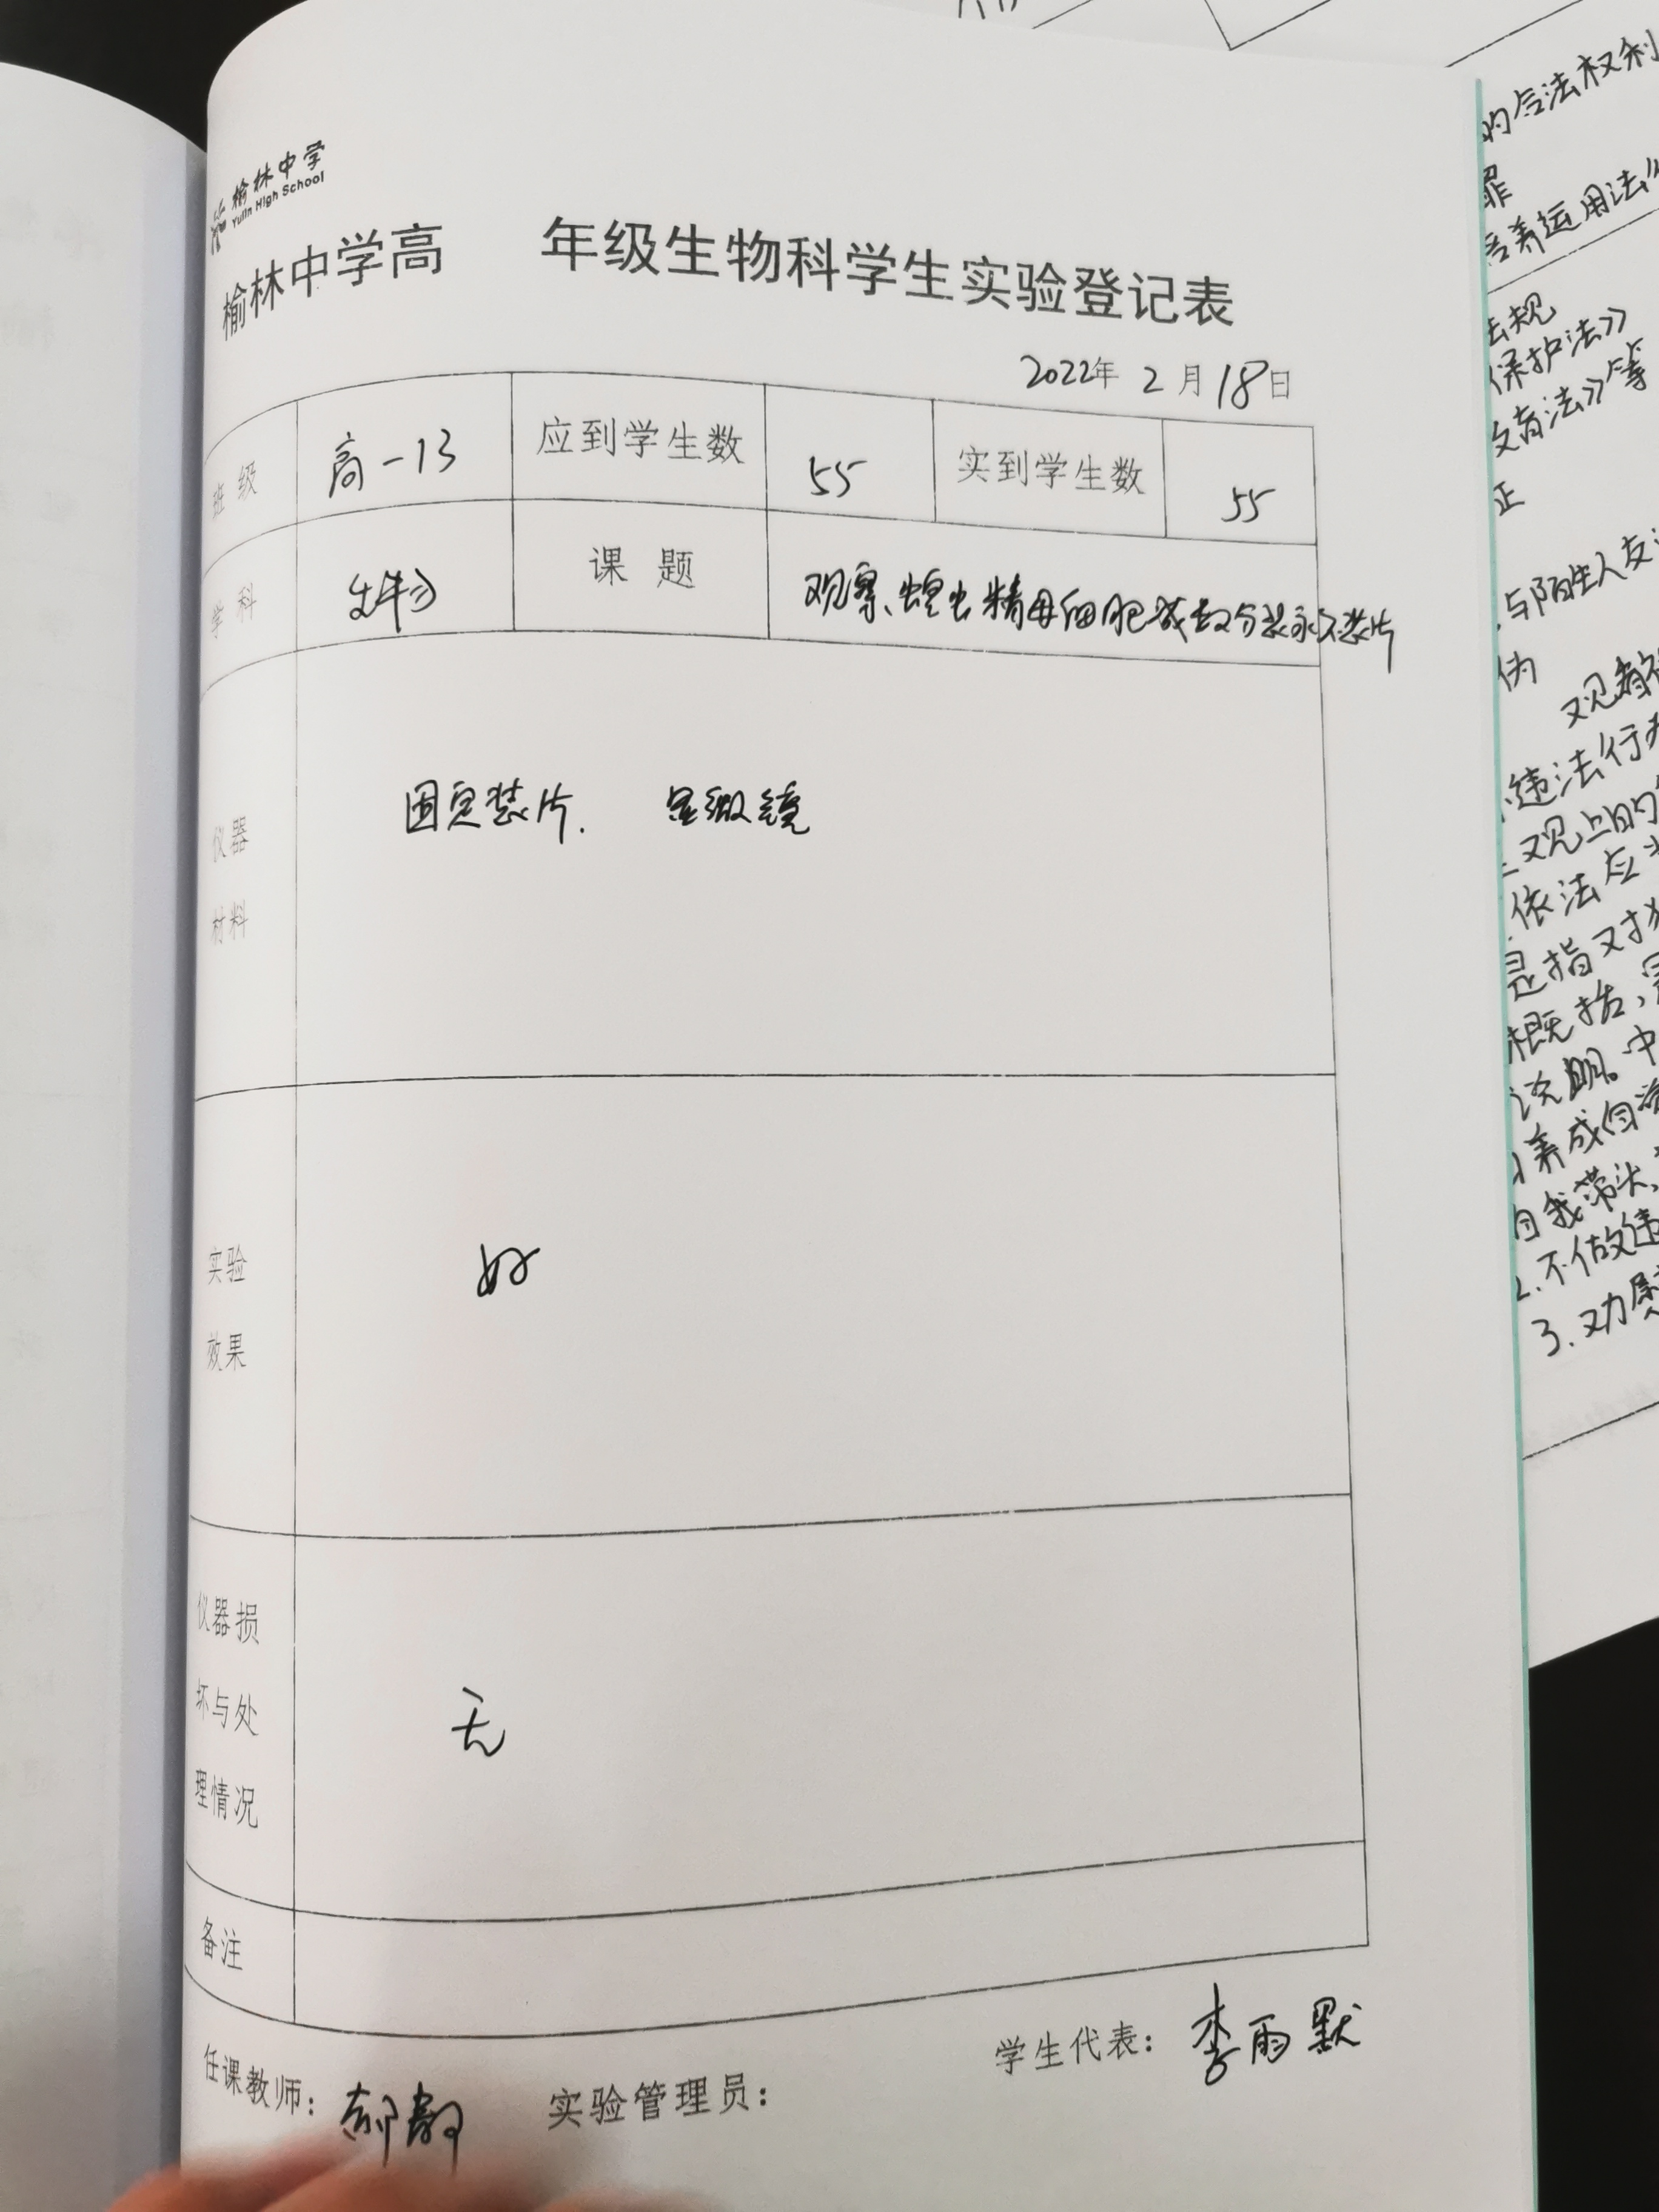 榆林中学
Yulin High School
榆林中学高 年级生物科学生实验登记表
2022年 2 月 18 日
班 级 高一13 应到学生数 55 实到学生数 55
学 科 生物 课 题 观察蝗虫精母细胞减数分裂永久装片
仪器
材料
固定装片. 显微镜
实验
效果
好
仪器损
坏与处
理情况
无
备注
任课教师: 实验管理员: 学生代表: 李雨默
的合法权利
罪
培养运用法
法规
保护法》
教育法》等
正
与陌生人交
伪
违法行
观上的
依法应
是指对
概括,
说明。中
养成自
自我带头,
2.不做违
3.